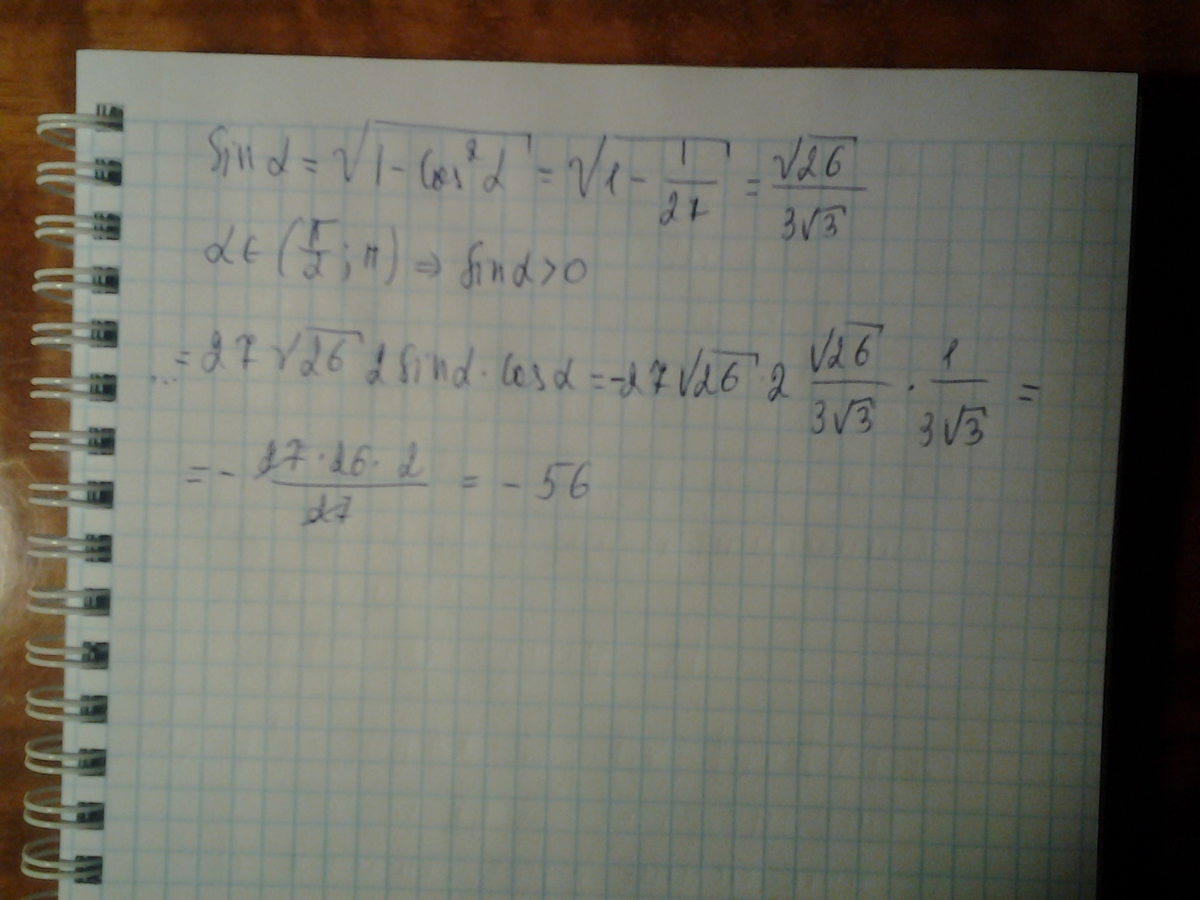 sin α = √(1 - cos² α) = √(1 - 1/27) = √26/(3√3)
α ∈ (π/2; π) ⇒ sin α > 0
... = 27√26 2 sin α · cos α = -27√26 · 2 √26/(3√3) · 1/(3√3) =
= - (27 · 26 · 2)/27 = - 56